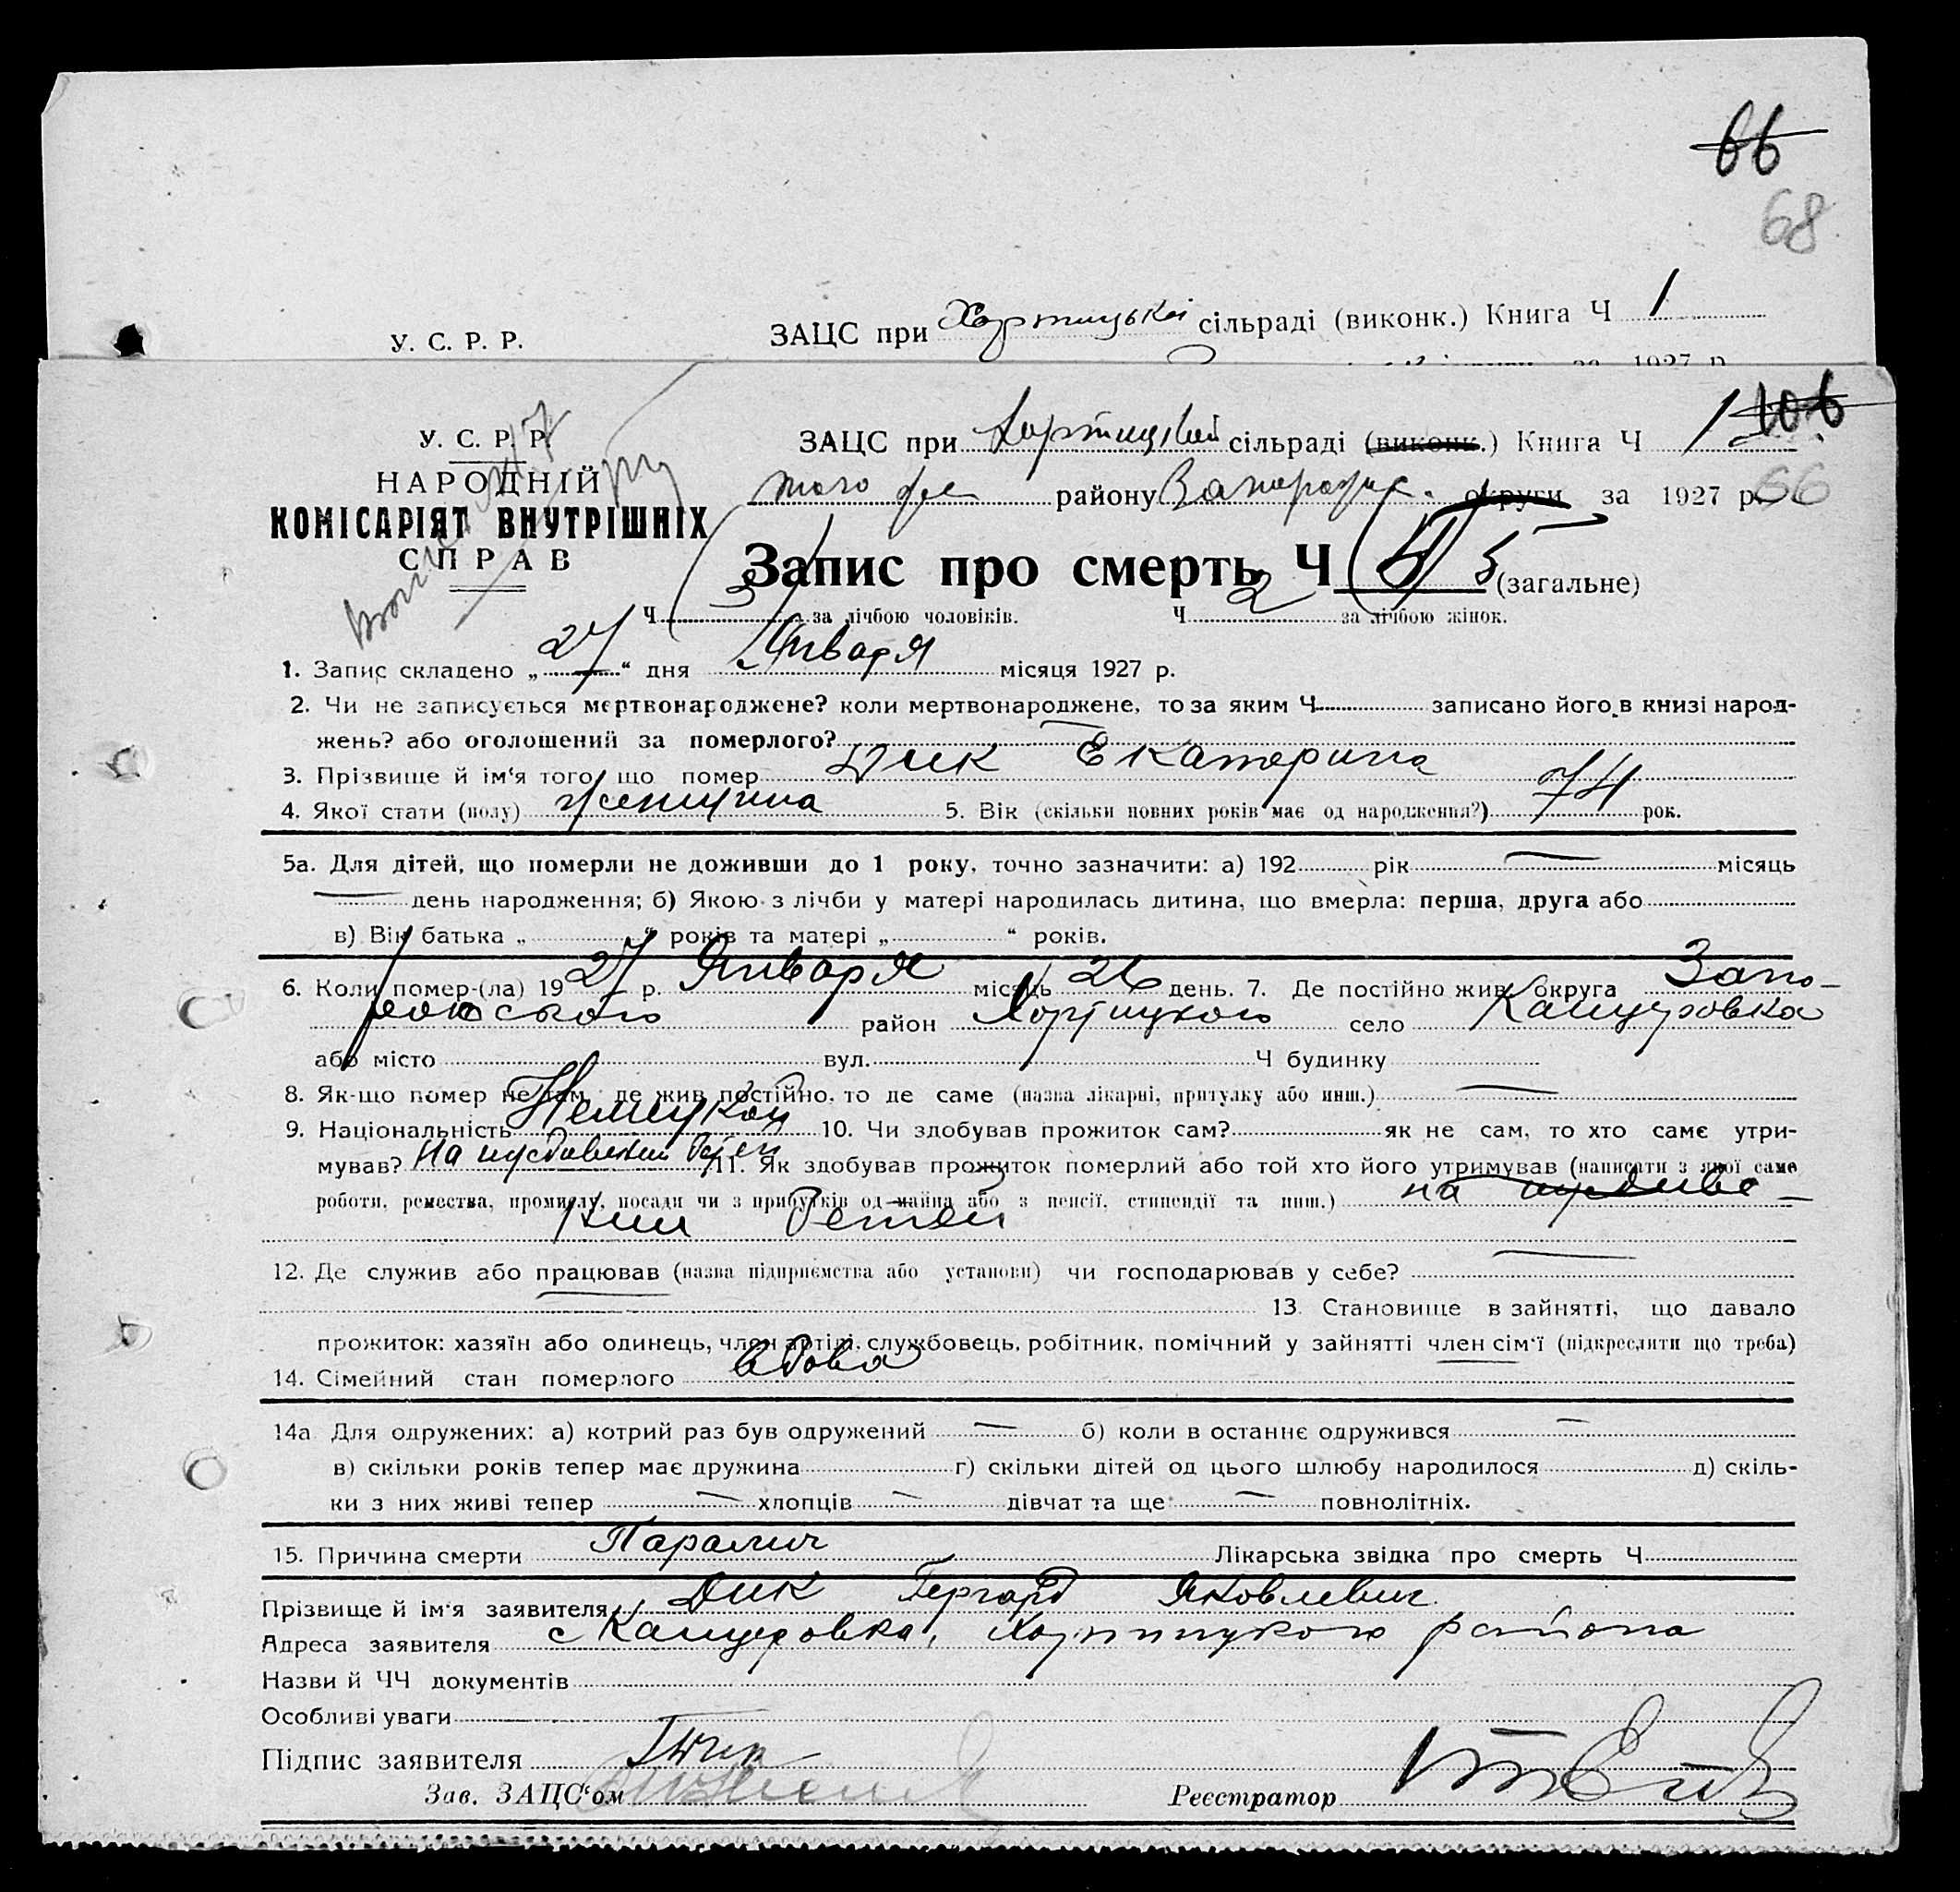 66
68
У. С. Р. Р.
ЗАЦС при Хортицькій сільраді (виконк.) Книга Ч 1
за 1927 р.
У. С. Р. Р.
НАРОДНІЙ
КОМІСАРІЯТ ВНУТРІШНІХ
СПРАВ
ЗАЦС при Хортицькій сільраді (виконк.) Книга Ч 1 106
того же району Запорожс. округи за 1927 р. 66
Запис про смерть Ч 4 5 (загальне)
Ч 3 за лічбою чоловіків. Ч 2 за лічбою жінок.
1. Запис складено „27“ дня Января місяця 1927 р.
2. Чи не записується мертвонароджене? коли мертвонароджене, то за яким Ч записано його в книзі народ-
жень? або оголошений за померлого?
3. Прізвище й ім‘я того, що помер Дик Екатерина
4. Якої стати (полу) женщина 5. Вік (скільки повних років має од народження?) 74 рок.
5а. Для дітей, що померли не доживши до 1 року, точно зазначити: а) 192 рік — місяць
— день народження; б) Якою з лічби у матері народилась дитина, що вмерла: перша, друга або
в) Вік батька „ “ років та матері „ “ років.
6. Коли помер-(ла) 1927 р. Января місяць 26 день. 7. Де постійно жив округа Запо-
рожського район Хортицкого село Канцеровка
або місто вул. Ч будинку
8. Як-що помер не там, де жив постійно, то де саме (назва лікарні, притулку або инш.) —
9. Національність Немецкой 10. Чи здобував прожиток сам? як не сам, то хто саме утри-
мував? На иждивении детей 11. Як здобував прожиток померлий або той хто його утримував (написати з якої саме
роботи, ремества, промислу, посади чи з прибутків од майна або з пенсії, стипендії та инш.) на иждиве-
нии детей
12. Де служив або працював (назва підприємства або установи) чи господарював у себе? —
13. Становище в зайнятті, що давало
прожиток: хазяїн або одинець, член артілі, службовець, робітник, помічний у зайнятті член сім‘ї (підкреслити що треба)
14. Сімейний стан померлого вдова
14а Для одружених: а) котрий раз був одружений — б) коли в останнє одружився —
в) скільки років тепер має дружина г) скільки дітей од цього шлюбу народилося д) скіль-
ки з них живі тепер — хлопців — дівчат та ще — повнолітніх.
15. Причина смерти Паралич Лікарська звідка про смерть Ч
Прізвище й ім‘я заявителя Дик Гергард Яковлевич
Адреса заявителя с Канцеровка, Хортицкого района
Назви й ЧЧ документів
Особливі уваги
Підпис заявителя
Зав. ЗАЦС‘ом
Реєстратор